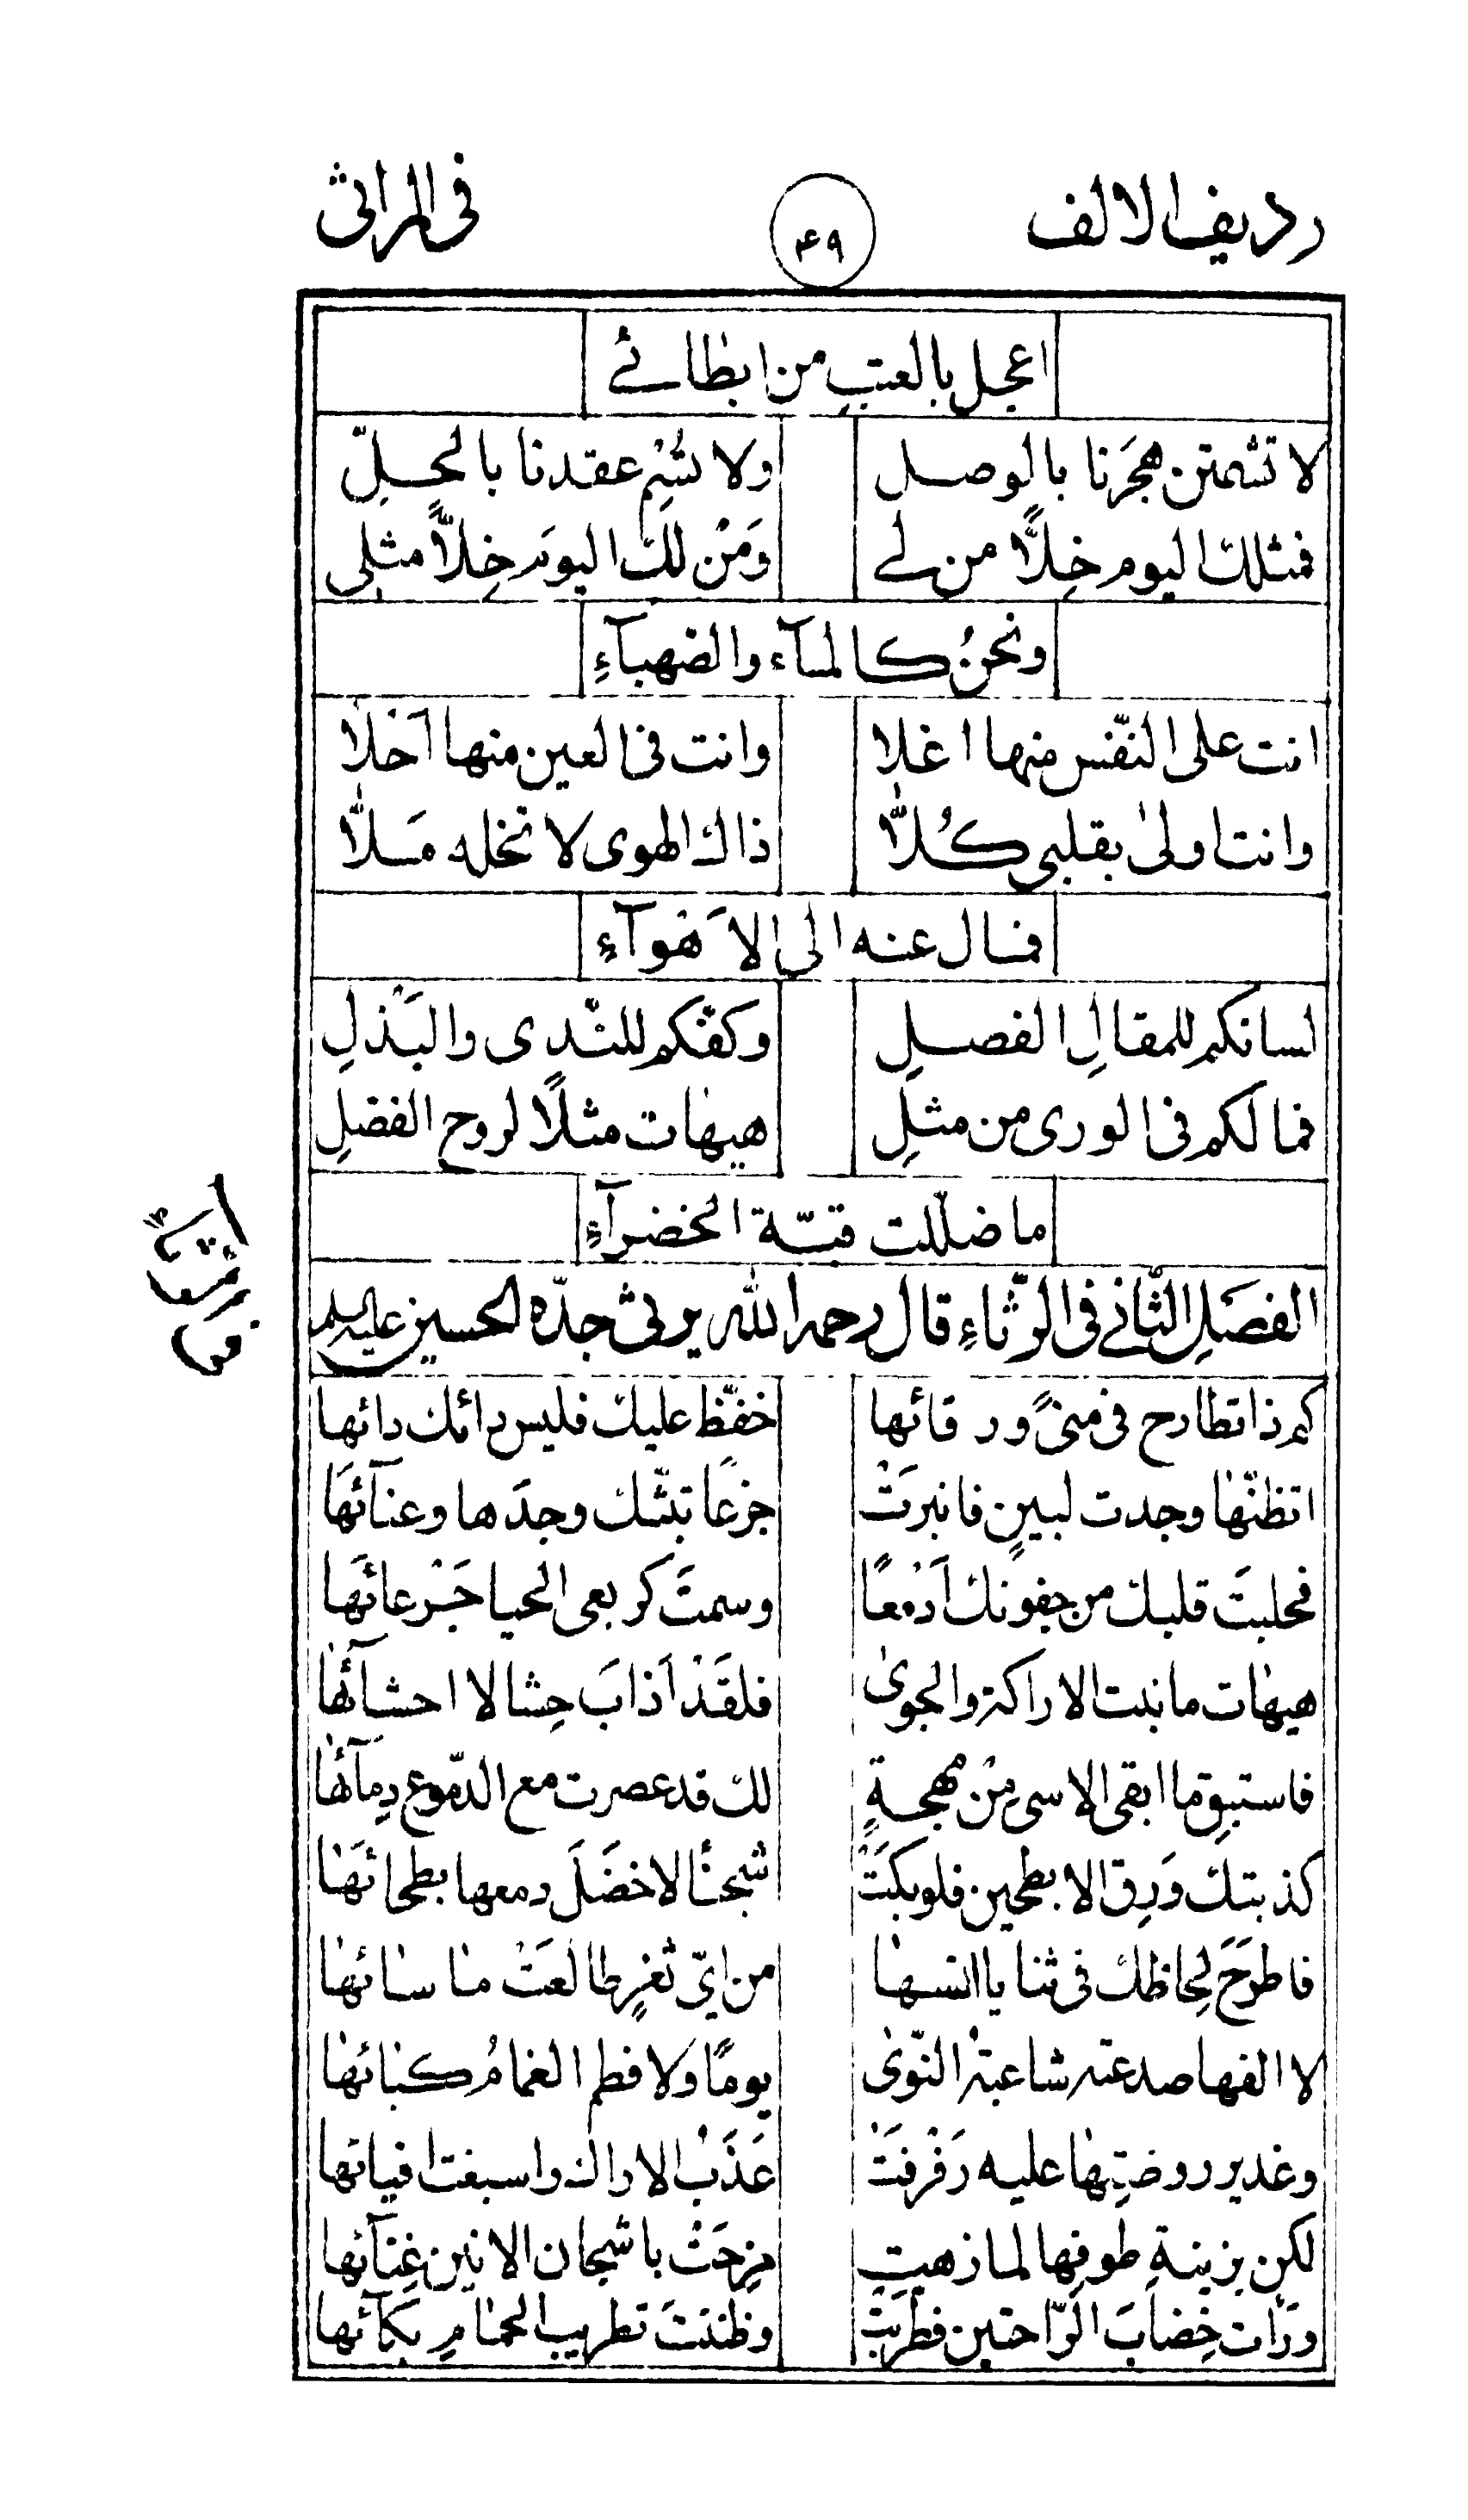 رديف الالف ٤٩ فى المراثى
اعجل بالعتبِ من ابطائے
لا تشمتن هجَرنا بالوصل ولا تسُمِ عقدنا بالحلِّ
فمثلك اليوم خِلاًّ من لے وَمَنْ لكَ اليومَ خِلاًّ مثلى
ونحنُ كالمآء والصهبآءِ
انت على النّفس منها اغلا وانت فى العين منها اَحْلا
وانت اولىٰ بقلبى كُلاًّ ذاك الهوى لا تخله مَلاًّ
فمال عنه الى الاَهْوآءِ
لسانكم للمقالِ الفصلِ وكفّكم للنّدى والبَذلِ
فما لكم فى الورى من مثلِ هيهات مثلاً لروح الفضلِ
ما ضلّلت قبّة الخضرآءِ
الفصَلِ الثّانے فى الرّثاءِ قال رحمه الله يرثى جدّه الحسين عليه السلم
كم ذا تطارح فى منىً ورقائها خفّظ عليك فليس دائك دائها
اتظنّها وجدت لبينٍ فانبرَتْ جزعًا تبثّك وجدَها وعنآئهَا
فحلبتَ قلبك من جفونك اَدْمعًا وسمتَ كربعى الحيا جَرْعائهَا
هيهات ما بنت الاراكة والجوىٰ فلقَدْ اَذابَ حِشا لا احشآئها
فاستبقِ ما ابقى الاسى مِنْ مهجةٍ لك قد عصرت مع الدّموع دِمآئها
كذبتك وَرِق الابطحين فلو بكَتْ شجنًا لاخضَلَ دمعها بطحائهَا
فاطرَحَ لِحاظك فى ثنايا انسها من اىّ ثغرٍ طالعَتْ ما سائها
لا الفها صدعته شاعبة النّوىٰ يومًا ولا فطم الغمامُ كبائها
وغدير روضتِها عليه رَفْرفَتْ عَذَبْ الاراك واسبغت افيائها
لكن بزينةِ طوقِها لما زهيت مزِحَتْ باشجان الانين غِنآئها
ورَأت خِضابَ الرّاحتين فطَرّبَتْ وظننتَ تطريب الحمامِ بكآئها